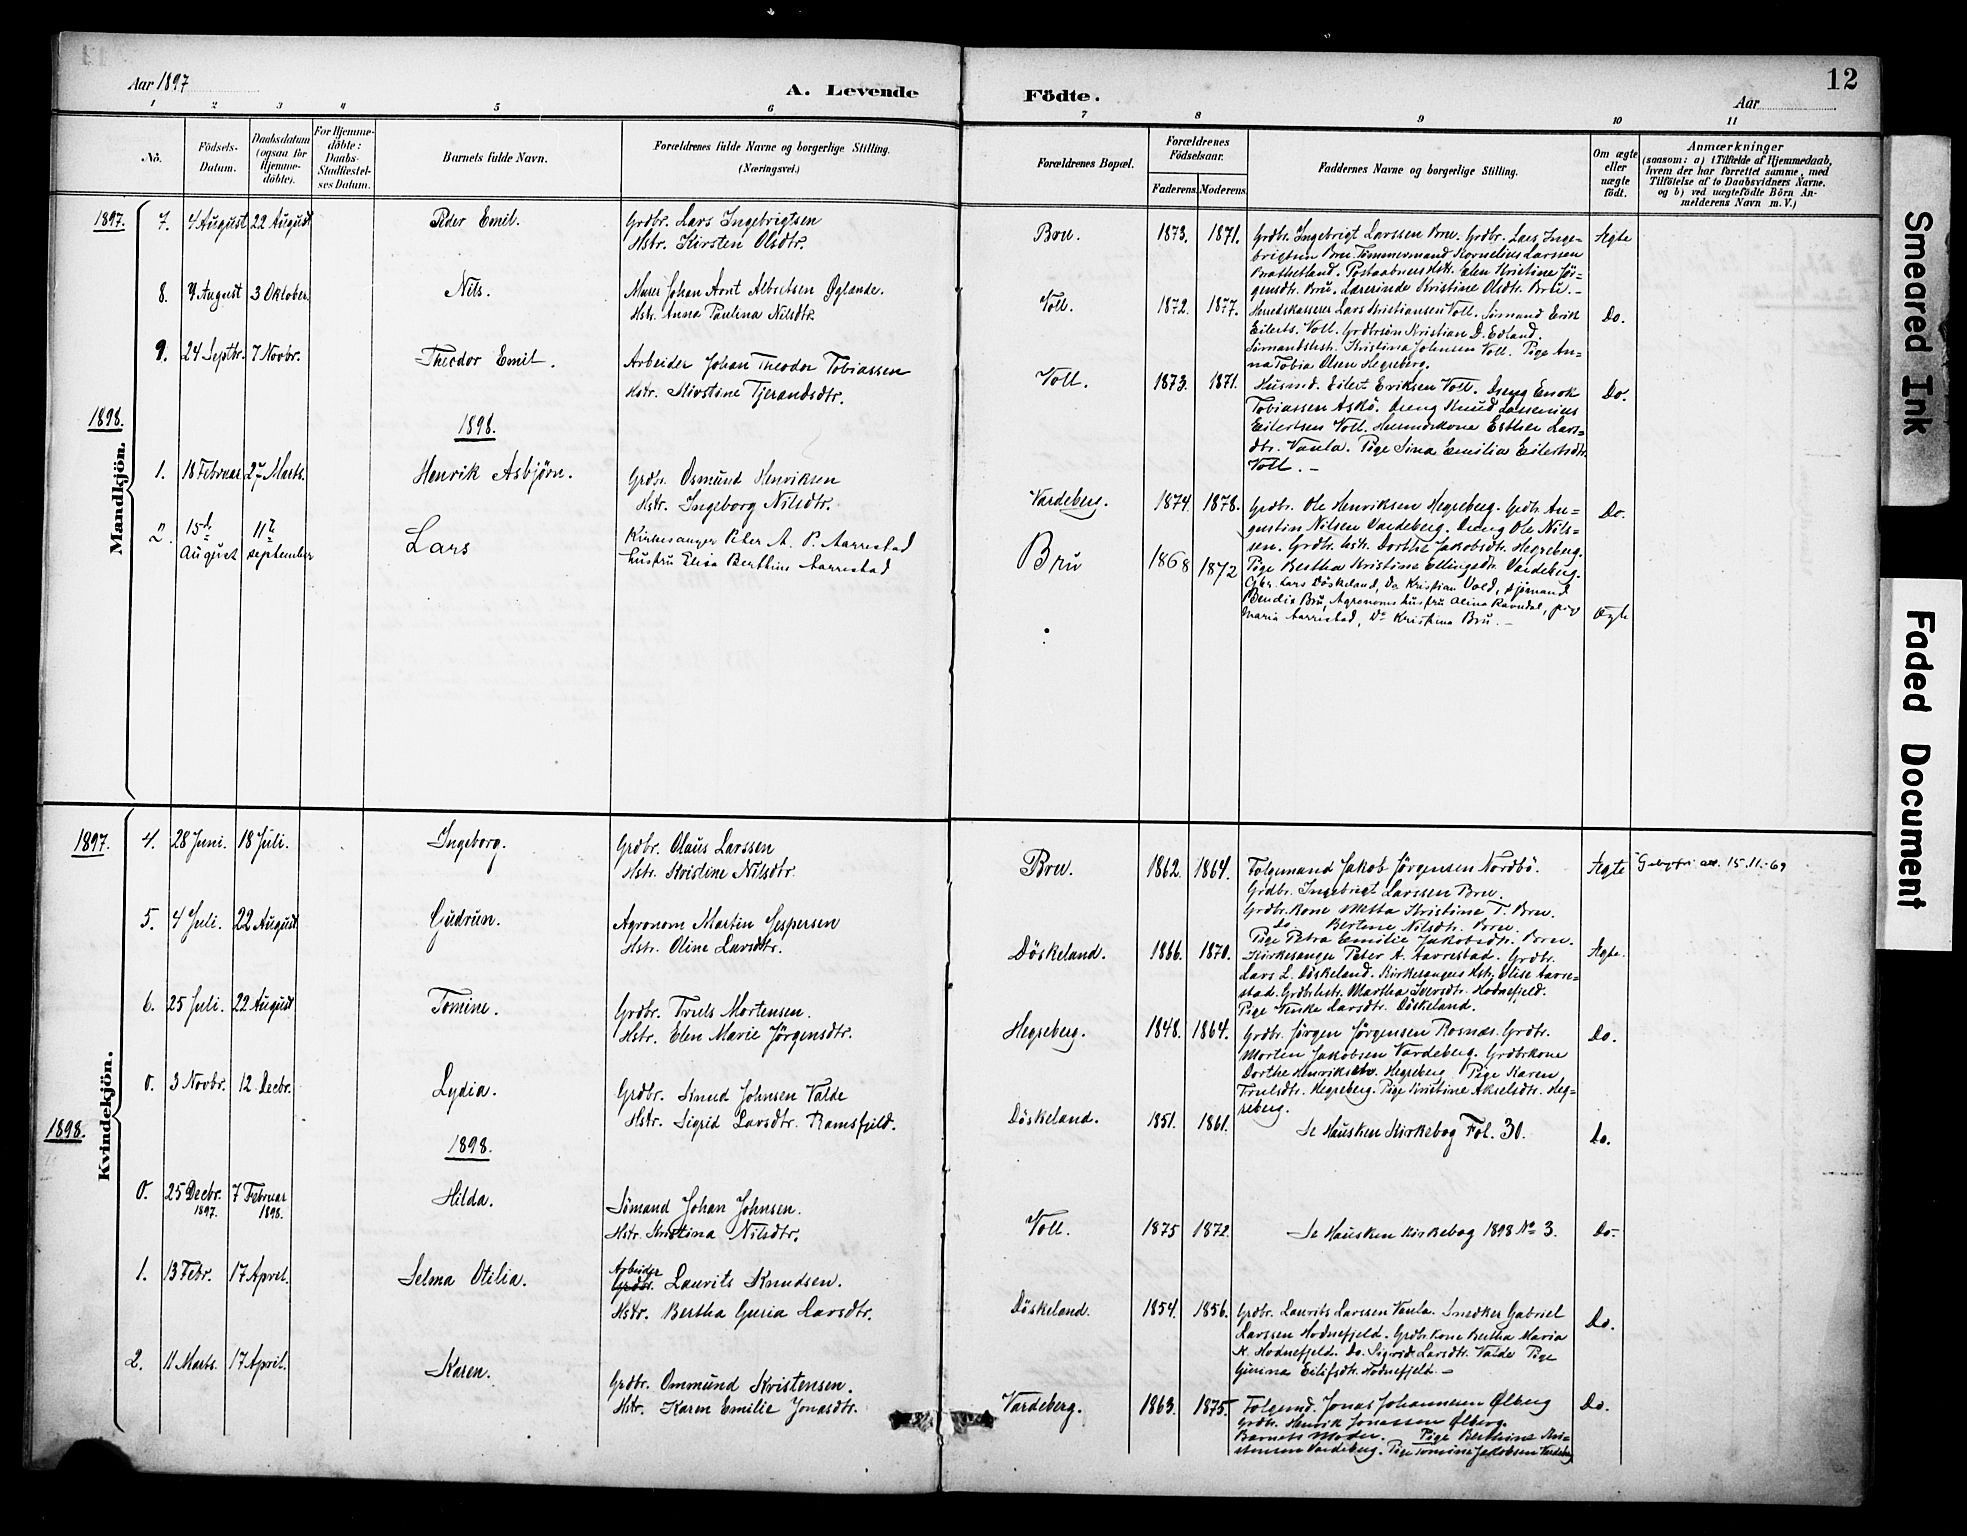 Aar 1897
A. Levende
Födte.
Aar
12
1 2 3 4 5 6 7 8 9 10 11
No.
Födsels-
Datum.
Daabsdatum
(ogsaa for
Hjemme-
döbte).
For Hjemme-
döbte:
Daabs-
Stadfæstel-
ses Datum.
Barnets fulde Navn.
Forældrenes fulde Navne og borgerlige Stilling.
(Næringsvei.)
Forældrenes Bopæl.
Forældrenes
Födselsaar.
Faderens. Moderens.
Faddernes Navne og borgerlige Stilling.
Om ægte
eller
uægte
födt.
Anmærkninger
(saasom: a) i Tilfælde af Hjemmedaab,
hvem der har forrettet samme, med
Tilföielse af to Daabsvidners Navne,
og b) ved uægtefödte Börn An-
melderens Navn m. V.)
Mandkjön.
1897.
7. 4 August 22 August
Peder Emil.
Grdbr. Lars Ingebrigtsen
Hstr. Kirsten Olsdtr.
Bru. 1873. 1871.
Grdbr. Ingebrigt Larssen Bru. Grdbr. Lars Inge-
brigtsen Bru. Tømmermand Kornelius Larssen
Brattetland. Postaabners Hstr. Elen Kristine Jør-
gensdtr. Bru. Lærerinde Kristine Olsdtr. Bru. -
Ægte
8. 4 August 3 Oktober.
Nils.
Murer Johan Arnt Albretsen Øglænde.
Hstr. Anna Paulina Nilsdtr.
Voll. 1872. 1877.
Herredskasserer Lars Kristiansen Voll. Sømand Erik
Eilerts. Voll. Grdbrsøn Kristian D. Edland.
Sømandshstr. Kristina Johnsen Voll. Pige An-
na Tobia Olsen Hegreberg.
Do.
9. 24 Septbr. 7 Novbr.
Theodor Emil.
Arbeider Johan Theodor Tobiassen
Hstr. Kirstine Tjerandsdtr.
Voll. 1873. 1871.
Husmd. Eilert Eriksen Voll. Dreng Enok
Tobiassen Askö. Dreng Knud Lassenius
Eilertsen Voll. Husmdskone Esther Lars-
dtr. Vaula. Pige Sina Emilia Eilertsdtr.
Voll. -
Do.
1898.
1898.
1. 18 Februar 27 Marts.
Henrik Asbjörn.
Grdbr. Osmund Henriksen
Hstr. Ingeborg Nilsdtr.
Vardeberg. 1874. 1878.
Grdbr. Ole Henriksen Hegreberg. Grdbr. Au-
gustin Nilsen Vardeberg. Dreng Ole Nils-
sen. Grdbr. hstr. Dorthe Jakobsdtr. Hegreberg.
Pige Bertha Kristine Ellingsdtr. Vardeberg.
Do.
2. 15de August 11te september
Lars
Kirkesanger Peter A. P. Aarrestad
hustru Elisa Berthine Aarrestad
Bru 1868 1872
Gbr. Lars Döskeland, Do Kristian Vold, sjømand
Bendix Bru, Agronoms hustru Alina Ravndal, pige
Maria Aarrestad, Do Kristina Bru. -
Ægte
Kvindekjön.
1897.
4. 28 Juni. 18 Juli.
Ingeborg.
Grdbr. Olaus Larssen
Hstr. Kristine Nilsdtr.
Bru. 1862. 1864.
Folgemand Jakob Jørgensen Nordbö.
Grdbr. Ingebrigt Larssen Bru.
Grdbr. kone Metta Kristine T. Bru.
Do Bertine Nilsdtr. Bru.
Pige Petra Emilie Jakobsdtr. Bru.
Ægte
15.11.-69
5. 4 Juli. 22 August
Gudrun.
Agronom Martin Jespersen
Hstr. Oline Larsdtr.
Döskeland. 1866. 1870.
Kirkesanger Peter A. Aarrestad. Grdbr.
Lars L. Döskeland. Kirkesangers Hstr. Elise Aarre-
stad. Grdbr.hstr. Martha Iversdtr. Hodnefjeld.
Pige Venke Larsdtr. Döskeland.
Ægte.
6. 25 Juli. 22 August
Tomine.
Grdbr. Truls Mortensen.
Hstr. Elen Marie Jörgensdtr.
Hegreberg. 1848. 1864.
Grdbr. Jørgen Jørgensen Rosnæs. Grdbr.
Morten Jakobsen Vardeberg. Grdbrkone
Dorthe Henriksen. Hegreberg Pige Karen
Trulsdtr. Hegreberg. Pige Kristine Akselsdtr. Heg-
reberg.
Do.
0. 3 Novbr. 12 Decbr.
Lydia.
Grdbr. Knud Johnsen Valde
Hstr. Sigrid Larsdtr. Ramsfjeld.
Döskeland. 1851. 1861.
Se Hausken Kirkebog Fol. 30.
Do.
1898.
1898.
0. 25 Decbr. 1897. 7 Februar 1898.
Hilda.
Sömand Johan Johnsen.
Hstr. Kristina Nilsdtr.
Voll. 1875 1872.
Se Hausken Kirkebog 1898 No 3.
Do-
1. 13 Febr. 17 April.
Selma Otilia.
Arbeider
Grdbr. Laurits Knudsen.
Hstr. Bertha Guria Larsdtr.
Döskeland. 1854. 1856.
Grdbr. Laurits Larssen Vaula. Snedker Gabriel
Larssen Hodnefjeld. Grdbr.kone Bertha Maria
K. Hodnefjeld. Do. Sigrid Larsdtr. Valde Pige
Gurina Eilifsdtr. Hodnefjeld. -
Do.
2. 11 Marts. 17 April.
Karen.
Grdbr. Ommund Kristensen.
Hstr. Karen Emilie Jonasdtr.
Vardeberg. 1863. 1875.
Folgemd. Jonas Johannesen Ølberg
Grdbr. Henrik Jonassen Ølberg.
Barnets Moder. Pige Berthine Kri-
stensen Vardeberg. Pige Tomine Jakobsen Vardeberg
Do.
Smeared Ink
Faded Document